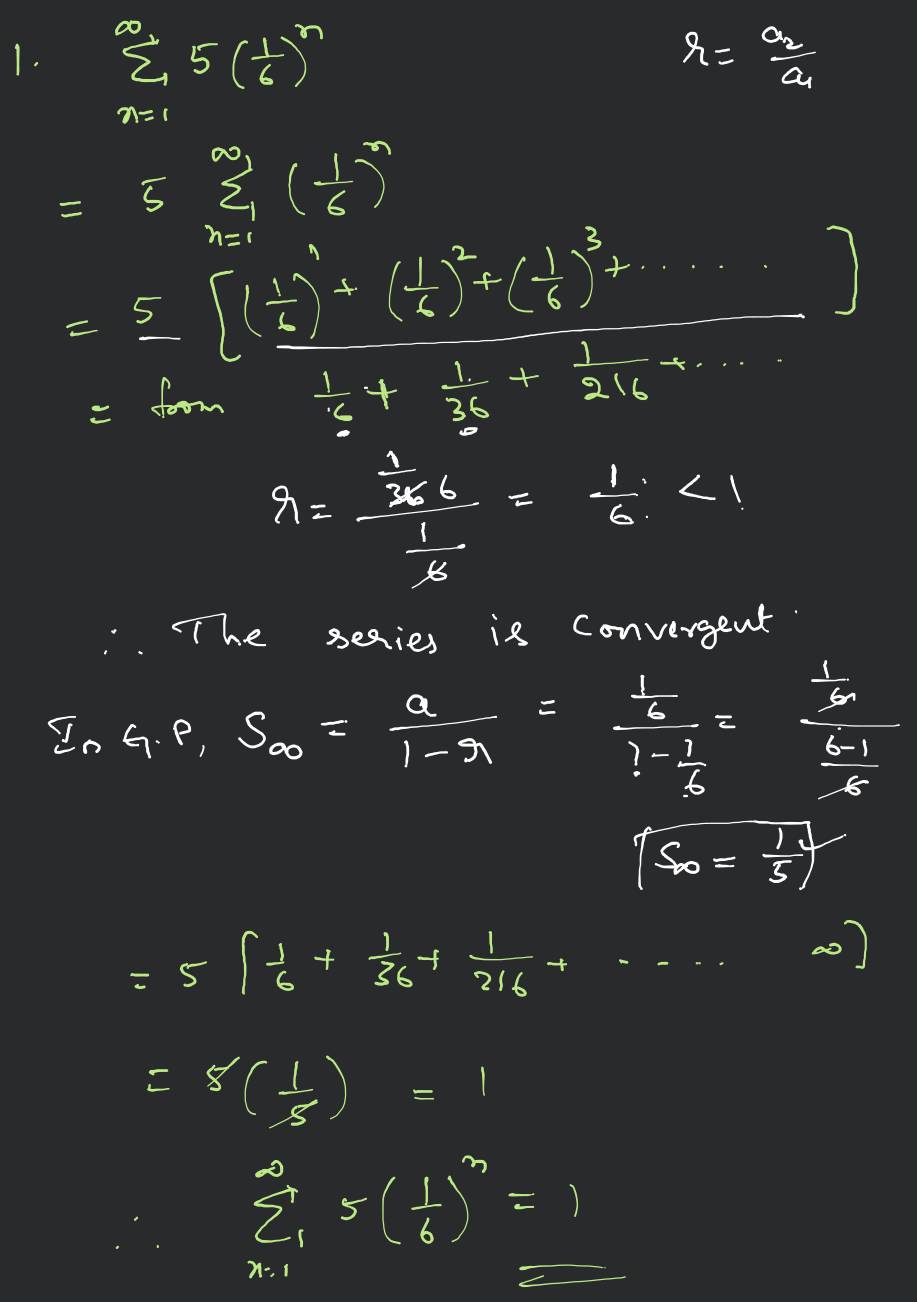 1. ∞ Σ n=1 5 (1/6)^n r = a₂/a₁
= 5 ∞ Σ n=1 (1/6)^n
= 5 [(1/6)^1 + (1/6)^2 + (1/6)^3 + ...... ]
= from 1/6 + 1/36 + 1/216 + ....
r = (1/36 6)/(1/6) = 1/6 < 1
∴ The series is convergent.
In G.P, S∞ = a/(1-r) = (1/6)/(1-1/6) = (1/6)/((6-1)/6)
S∞ = 1/5
= 5 [1/6 + 1/36 + 1/216 + ..... ∞]
= 5(1/5) = 1
∴ ∞ Σ n=1 5 (1/6)^n = 1